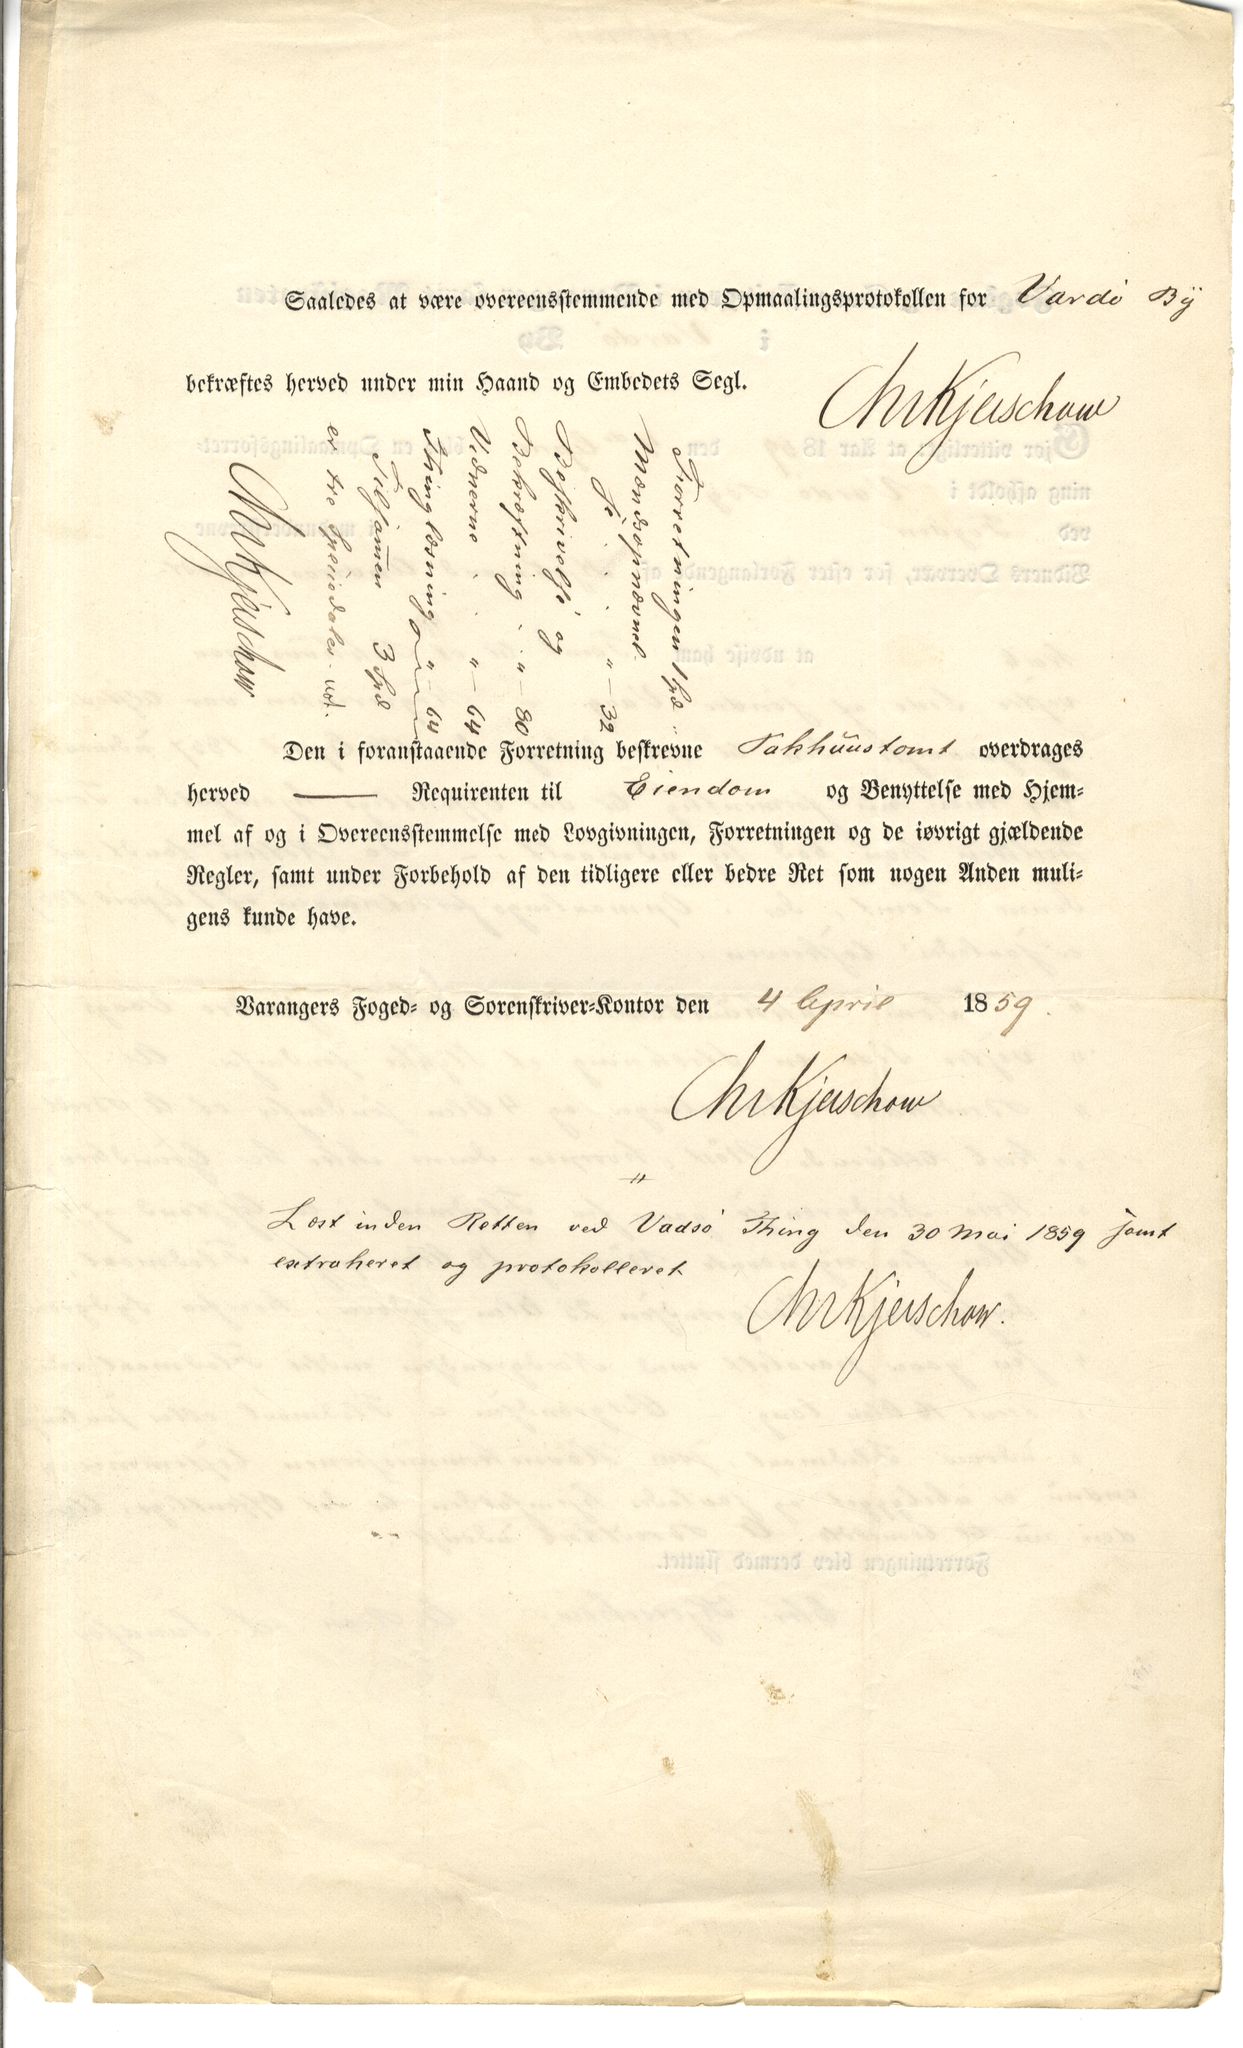 Saaledes at være overeensstemmende med Opmaalingsprotokollen for Vardö By
bekræftes herved under min Haand og Embedets Segl.
Chr Kjerschow
Forretningen 1 Spd
Mændsopnævnel.
se . . . " – 32
Beskrivelse og
Bekræftning . " – 80
Vidnerne . . " – 64
Thinglæsning " – 64
Tilsamen 3 Spd
er tre Speciedaler
Chr Kjerschow
Den i foranstaaende Forretning beskrevne Pakhuustomt overdrages
herved —— Requirenten til Eiendom og Benyttelse med Hjem-
mel af og i Overeensstemmelse med Lovgivningen, Forretningen og de iøvrigt gjældende
Regler, samt under Forbehold af den tidligere eller bedre Ret som nogen Anden muli-
gens kunde have.
Varangers Foged- og Sorenskriver-Kontor den 4 April 1859.
Chr Kjerschow
Læst inden Retten ved Vadsö Thing den 30 Mai 1859 samt
extraheret og protokolleret
Chr Kjerschow.